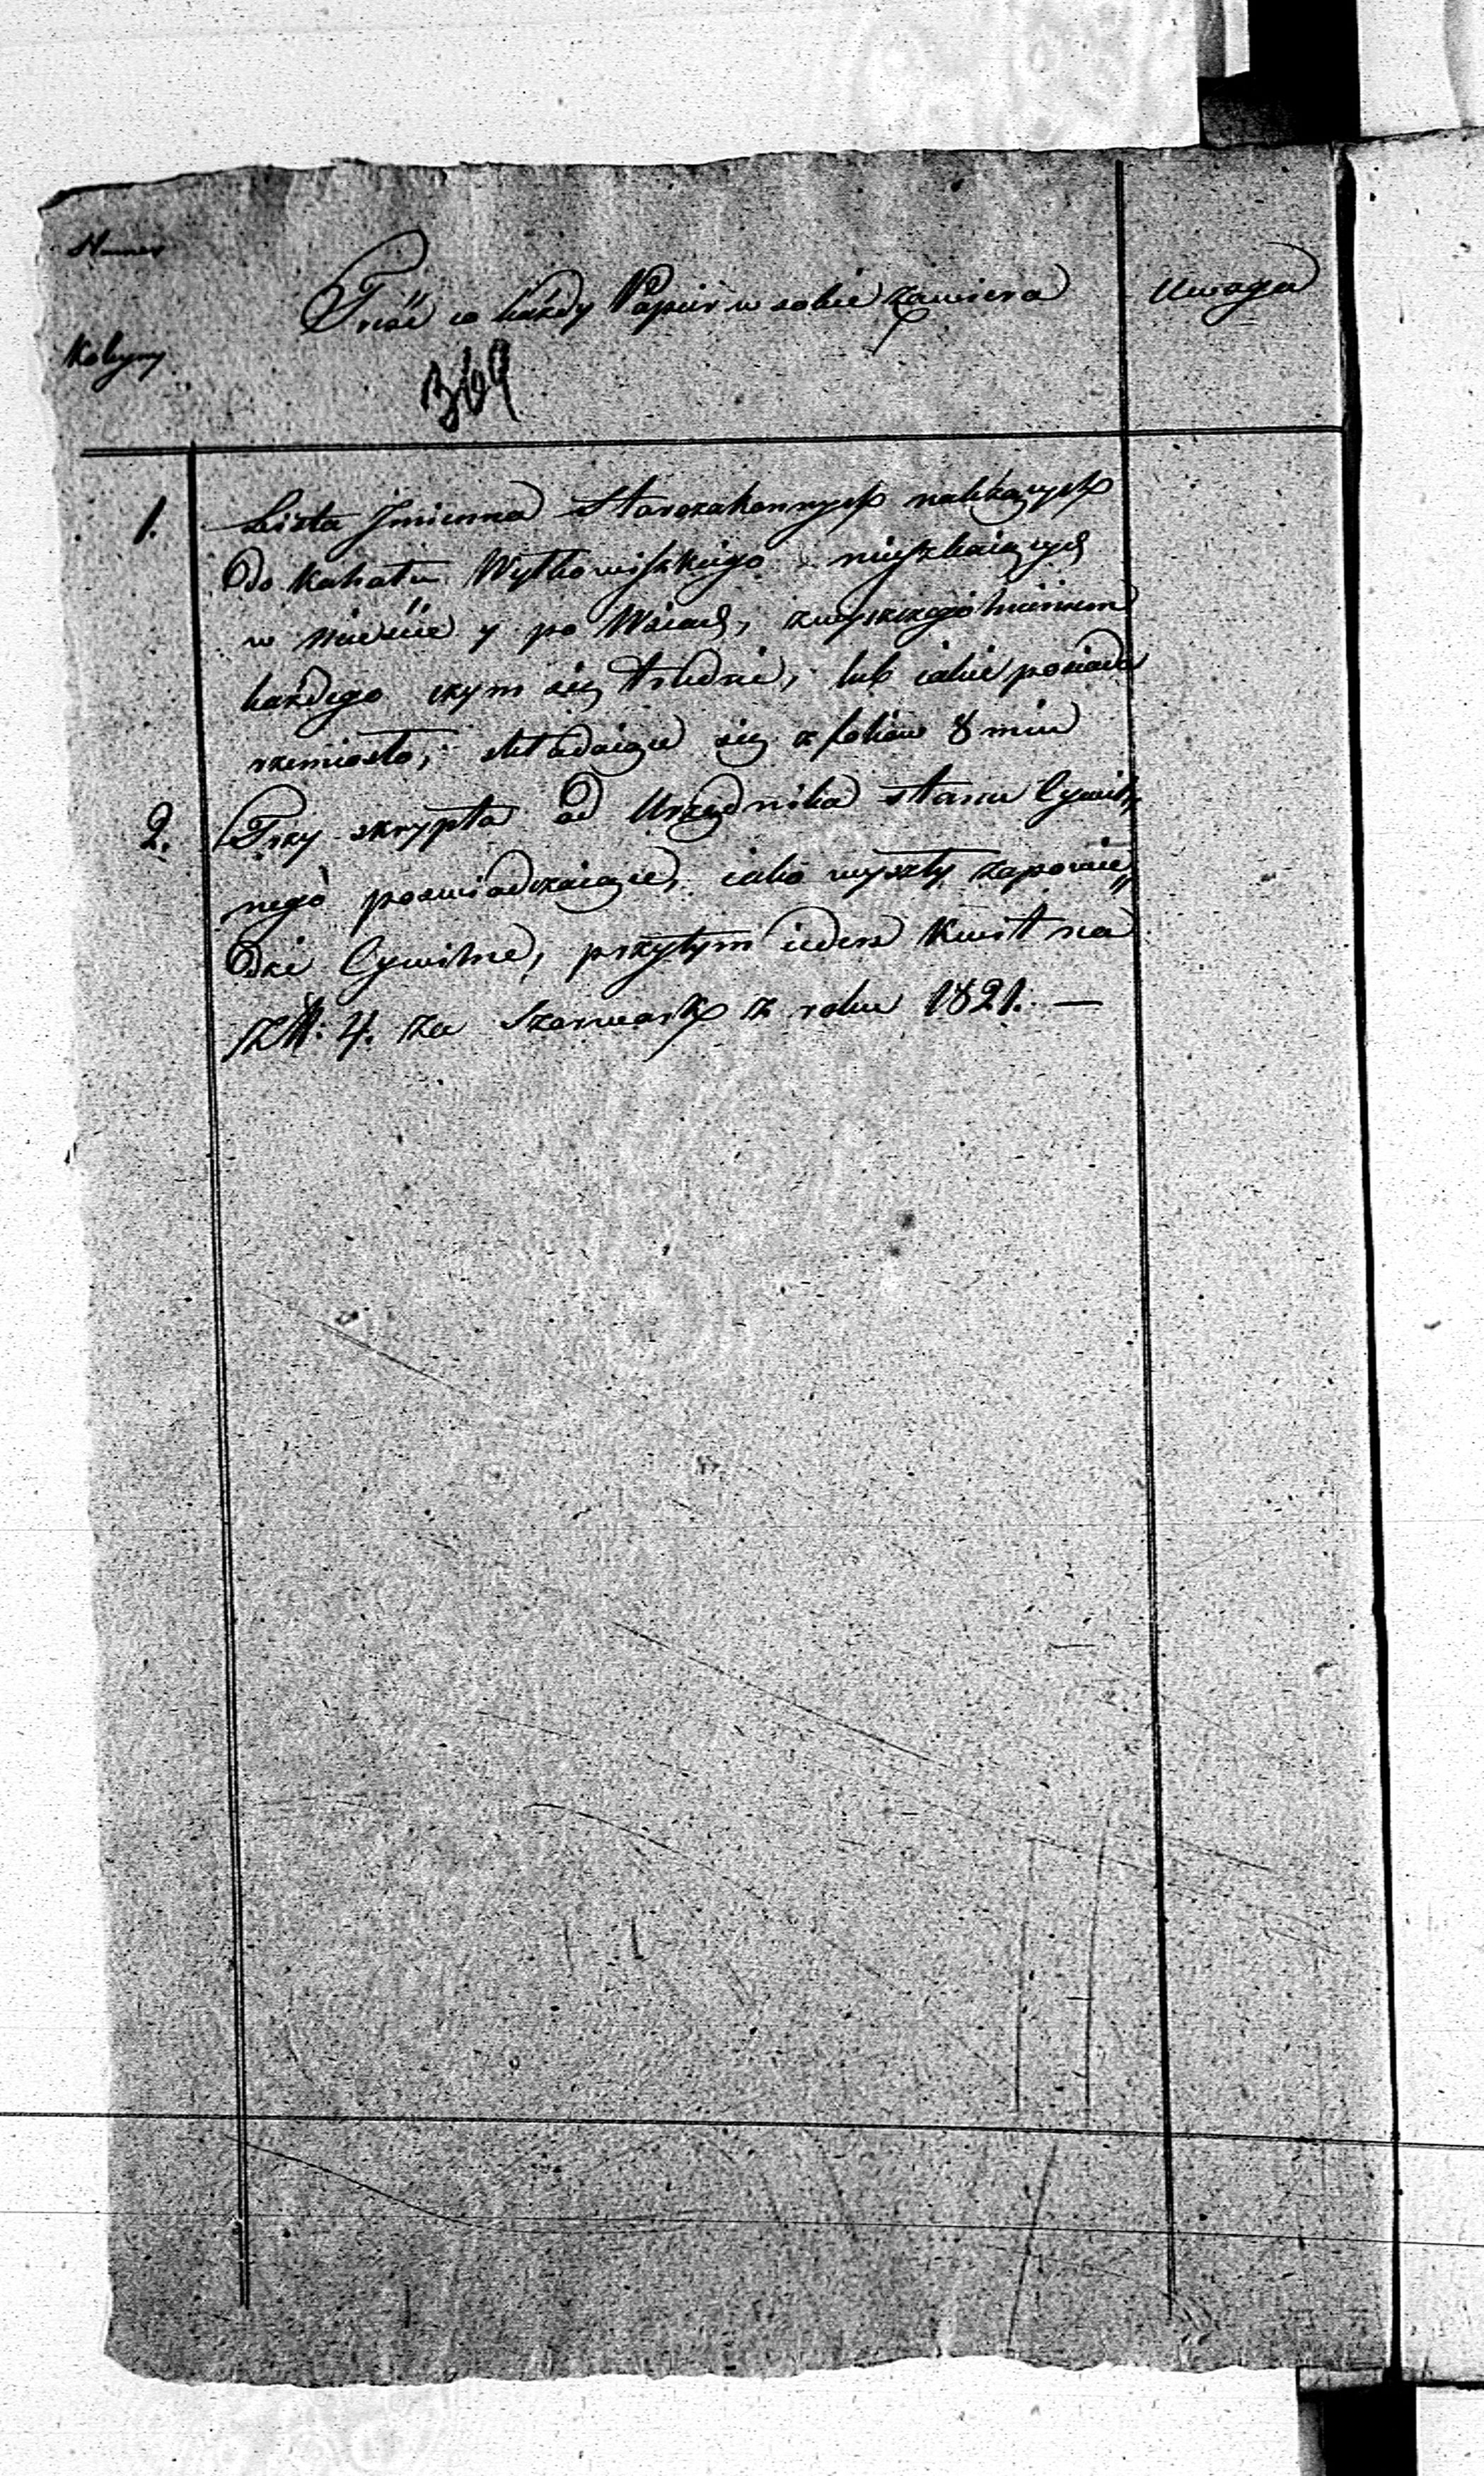 Numer
Kolejny
Treść co każdy Papier w sobie zawiera
Uwaga
369
1. Lista Jmienna Starozakonnych należących
do Kahału Wyłkowyskiego mieszkaiących
w mieście y po Wsiach, z wyszczegulnieniem
każdego czym się trudni, lub iakie posiada
rzemiosło, składaiąca się z foliow 8miu
2. Trzy skrypta od Urzędnika stanu Cywil„
nego poswiadczaiące, iako wyszły zapowie„
dzi Cywilne, przytym ieden Kwit na
Zł: 4. za Szarwark z roku 1821. —